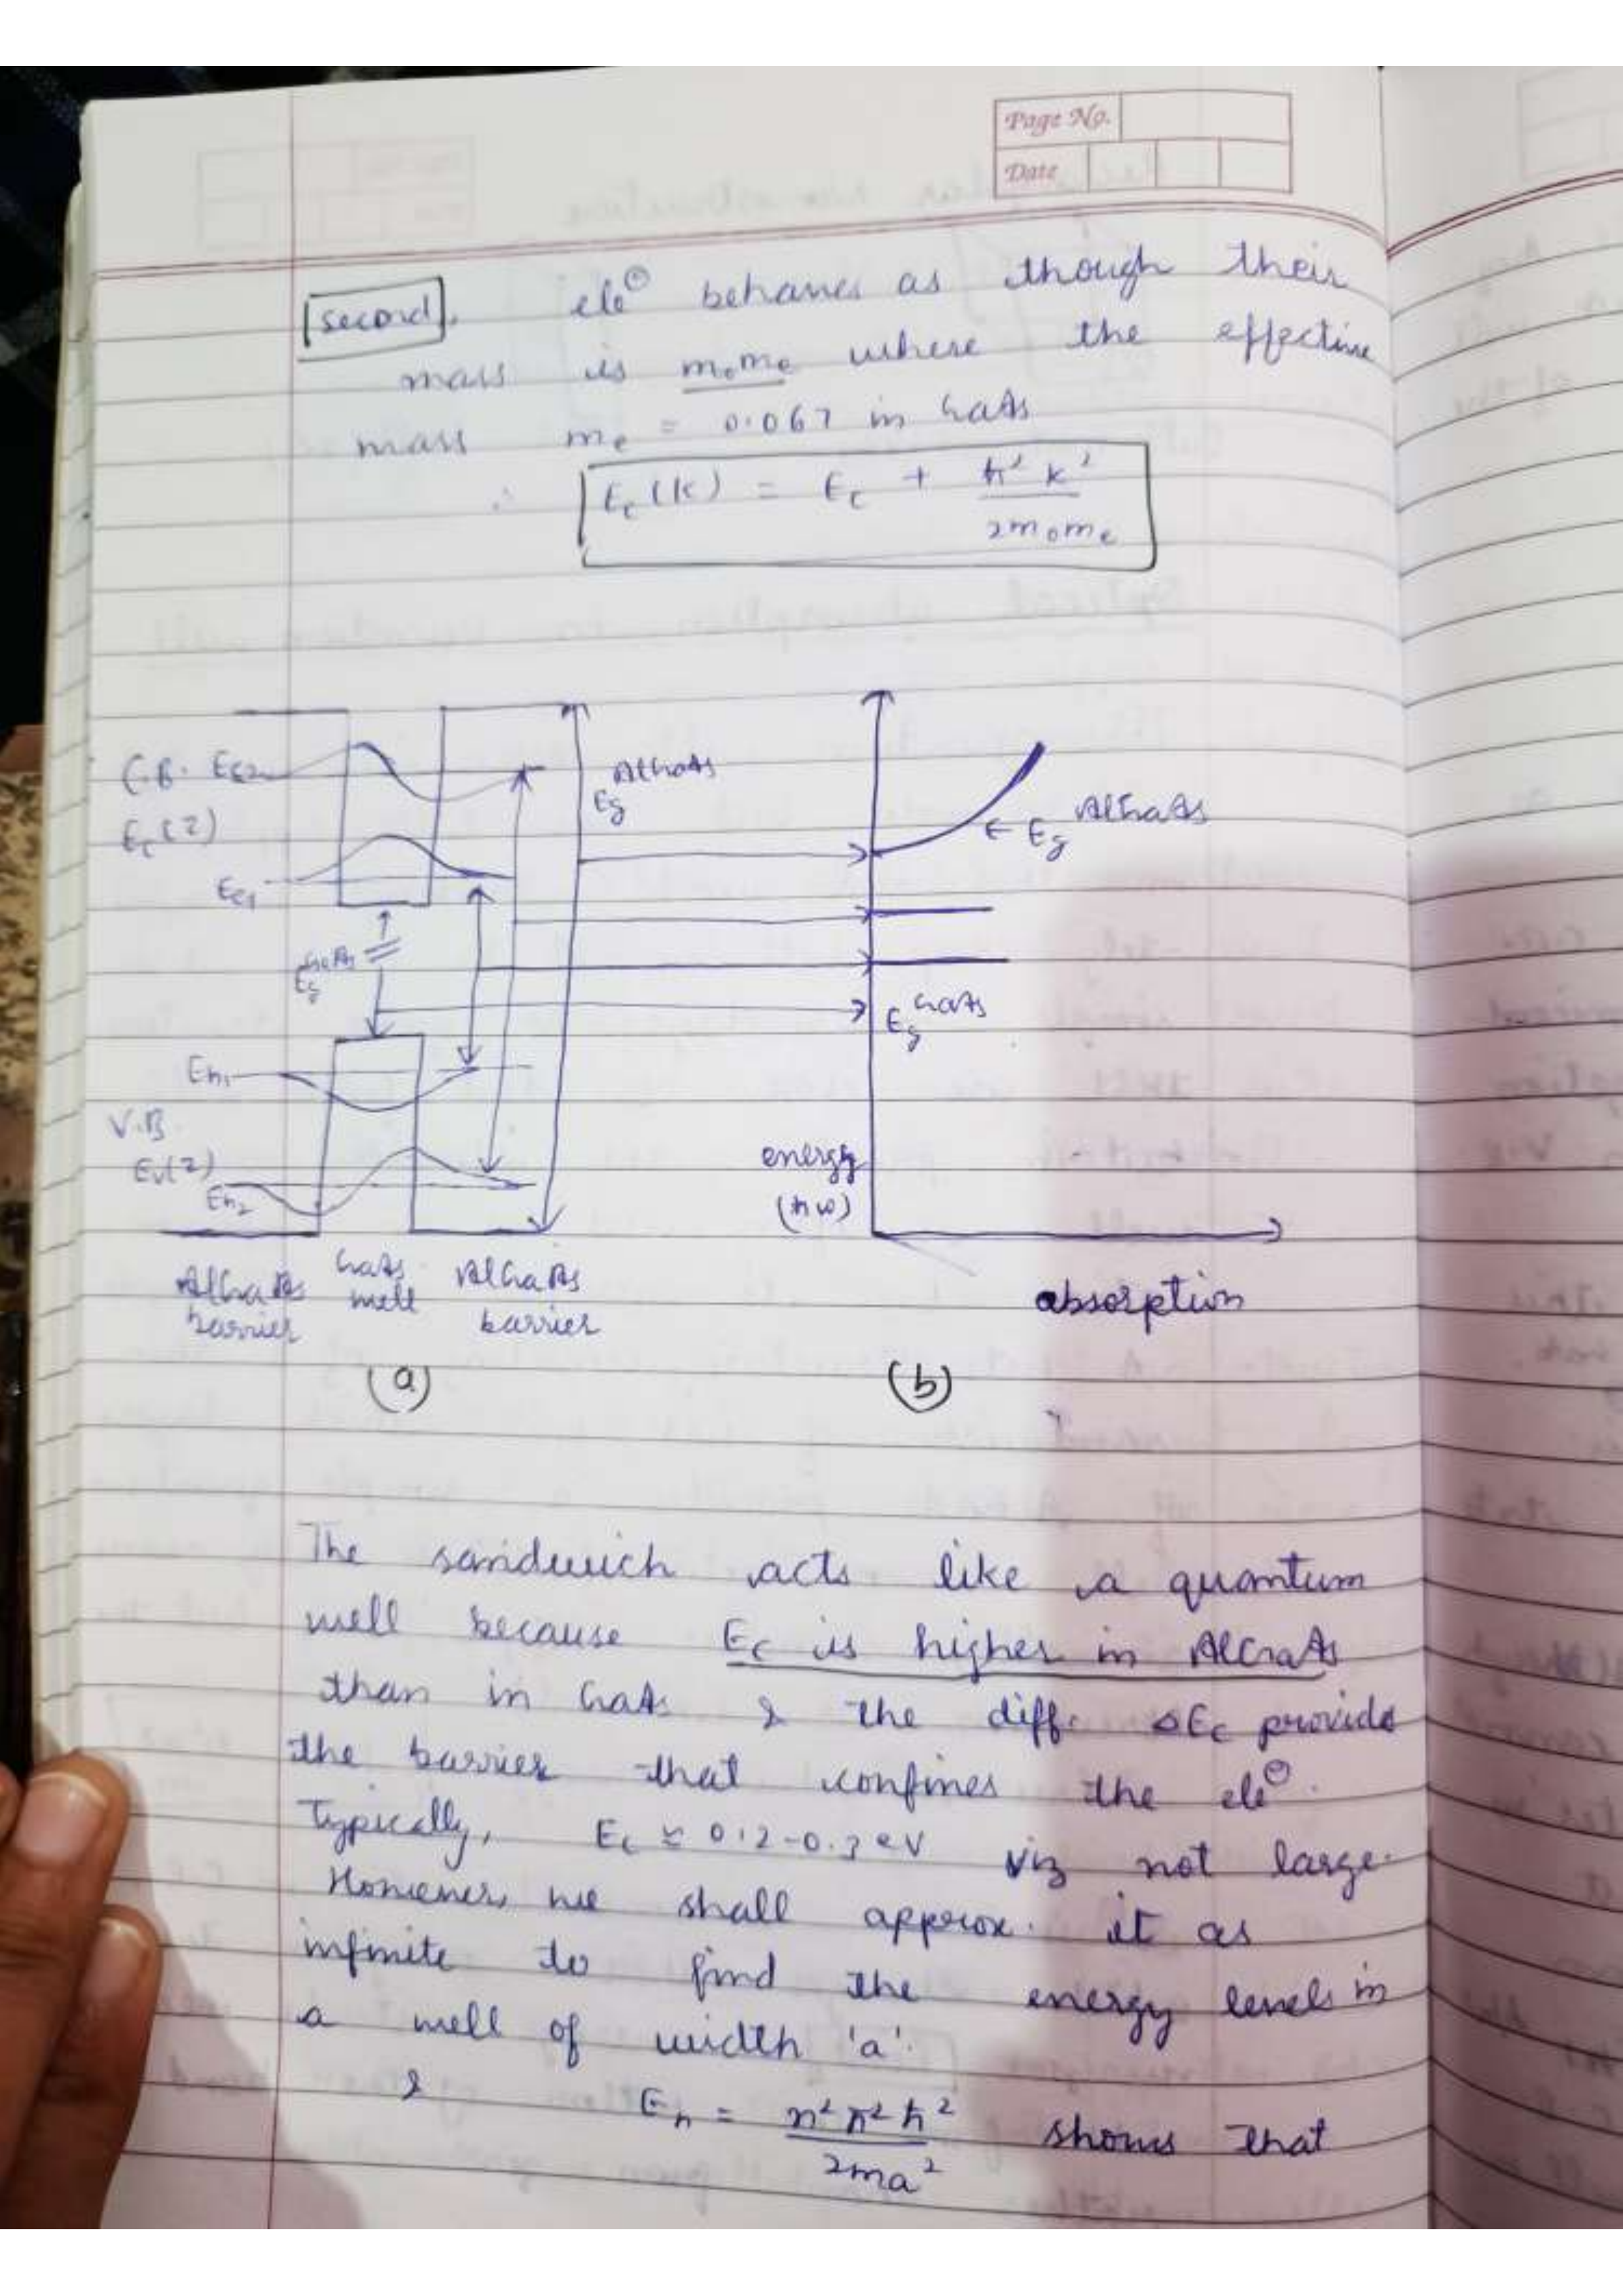 Page No.
Date
second. ele⊖ behaves as though their
mass is m₀mₑ where the effective
mass mₑ = 0.067 in GaAs
∴ E_c(k) = E_c + ħ²k² / 2m₀mₑ
C.B. E_e2
AlGaAs
E_g
E_c(z)
← E_g AlGaAs
E_e1
GaAs
E_g
E_g GaAs
E_h1
V.B.
E_v(z)
E_h2
energy
(ħω)
AlGaAs barrier
GaAs well
AlGaAs barrier
absorption
(a)
(b)
The sandwich acts like a quantum
well because E_c is higher in AlGaAs
than in GaAs & the diff. ΔE_c provide
the barrier that confines the ele⊖.
Typically, E_c ≃ 0.2-0.3 eV viz not large.
However, we shall approx. it as
infinite to find the energy levels in
a well of width 'a'.
& E_n = n²π²ħ² / 2ma² shows that